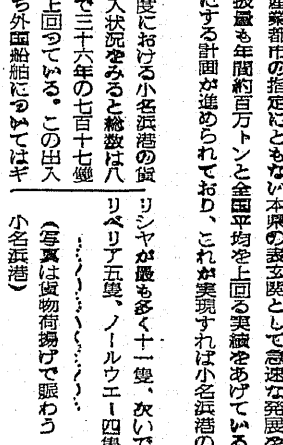 産業都市の指定にともない本県の表玄関として急速な発展を
扱量も年間約百万トンと全国平均を上回る実績をあげている
にする計画が進められており、これが実現すれば小名浜港の
度における小名浜港の貨
入状況をみると総数は八
で三十六年の七百十七隻
上回つている。この出入
ち外国船舶についてはギ
リシヤが最も多く十一隻、次いで
リベリア五隻、ノールウエー四隻
(写真は貨物荷揚げで賑わう
小名浜港)